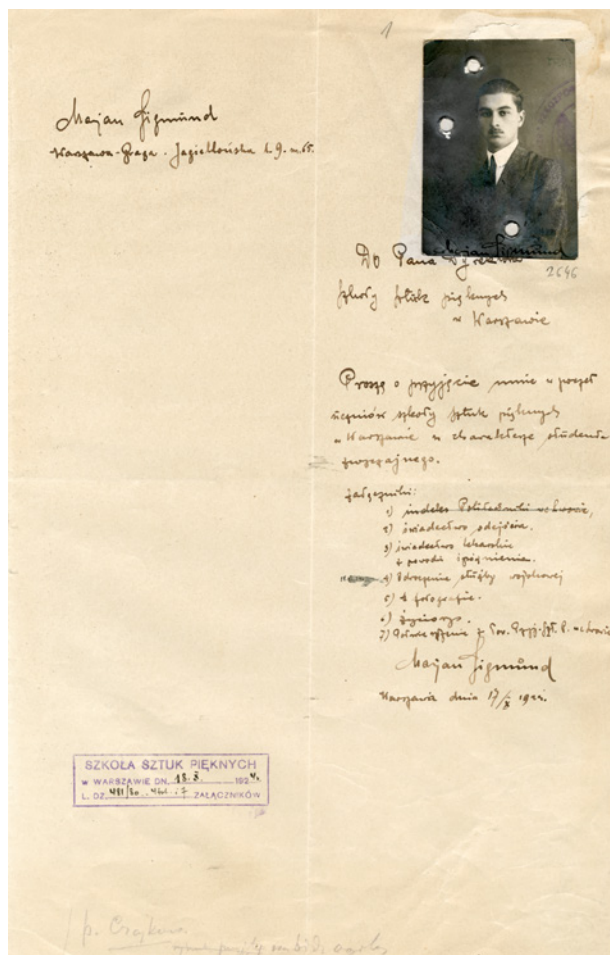 1
Marjan Sigmund
Warszawa-Praga. Jagiellońska L. 9. m. 65.
Marjan Sigmund
2646
Do Pana Dyrektora
Szkoły Sztuk pięknych
w Warszawie
Proszę o przyjęcie mnie w poczet
uczniów szkoły sztuk pięknych
w Warszawie w charakterze studenta
zwyczajnego.
Załączniki:
1) indeks Politechniki
2) świadectwo odejścia.
3) świadectwo lekarskie
z powodu spóźnienia.
4) służby wojskowej
5) 4 fotografie.
6) życiorys.
7)
Marjan Sigmund
Warszawa dnia 17/X 192
SZKOŁA SZTUK PIĘKNYCH
W WARSZAWIE DN. 18.X. 1924.
L. DZ. ZAŁĄCZNIKÓW
p.